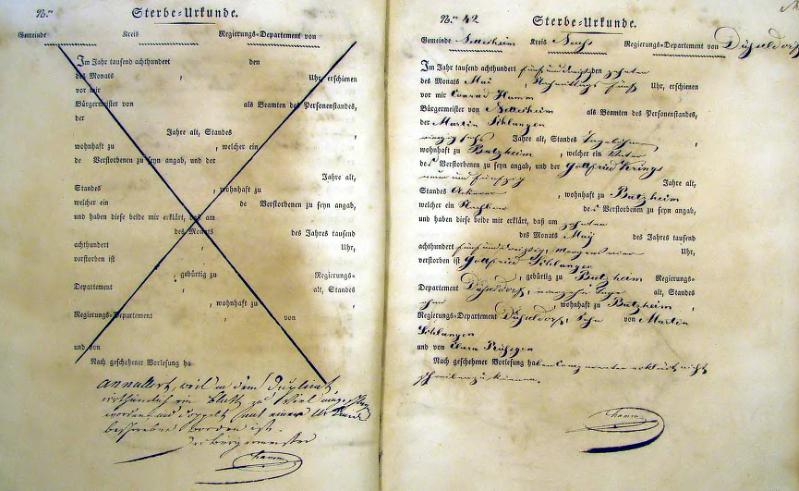 N.ro
Sterbe-Urkunde.
Gemeinde Kreis Regierungs-Departement von
Im Jahr tausend achthundert den
des Monats , Uhr, erschienen
vor mir
Bürgermeister von als Beamten des Personenstandes,
der
Jahre alt, Standes
wohnhaft zu , welcher ein
de Verstorbenen zu seyn angab, und der
Jahre alt,
Standes , wohnhaft zu
welcher ein de Verstorbenen zu seyn angab,
und haben diese beide mir erklärt, daß am
des Monats des Jahres tausend
achthundert , Uhr,
verstorben ist
, gebürtig zu Regierungs-
Departement alt, Standes
, wohnhaft zu
Regierungs-Departement von
und von
Nach geschehener Vorlesung ha-
annullirt, weil in dem Duplicat
irrthümlich ein Blatt zu viel
worden und doppelt mit einer Urkunde
beschrieben worden ist.
Der Bürgermeister
Hamm
N.ro 42
Sterbe-Urkunde.
Gemeinde Nettesheim Kreis Neuss Regierungs-Departement von Düsseldorf
Im Jahr tausend achthundert fünfunddreißig den zehnten
des Monats May , Nachmittags fünf Uhr, erschienen
vor mir Conrad Hamm
Bürgermeister von Nettesheim als Beamten des Personenstandes,
der Martin Schlangen
Jahre alt, Standes Tagelöhner,
wohnhaft zu Butzheim , welcher ein Vater
des Verstorbenen zu seyn angab, und der Gottfried Krings
neun und fünfzig Jahre alt,
Standes Ackerer , wohnhaft zu Butzheim
welcher ein Nachbar des Verstorbenen zu seyn angab,
und haben diese beide mir erklärt, daß am zehnten
des Monats May des Jahres tausend
achthundert fünfunddreißig, Morgens Uhr,
verstorben ist Gottfried Schlangen
, gebürtig zu Butzheim Regierungs-
Departement Düsseldorf, Tage alt, Standes
, wohnhaft zu Butzheim,
Regierungs-Departement Düsseldorf, Sohn von Martin
Schlangen
und von Clara
Nach geschehener Vorlesung haben erklärt nicht
schreiben zu können.
Hamm